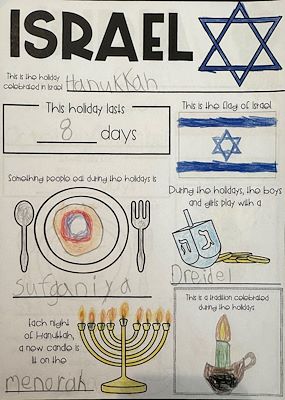 ISRAEL
This is the holiday
celebrated in Israel Hanukkah
This holiday lasts
8 days
This is the flag of Israel
Something people eat during the holidays is
Sufganiya
During the holidays, the boys
and girls play with a
נ
ג
Dreidel
Each night
of Hanukkah,
a new candle is
lit on the
menorah
This is a tradition celebrated
during the holidays